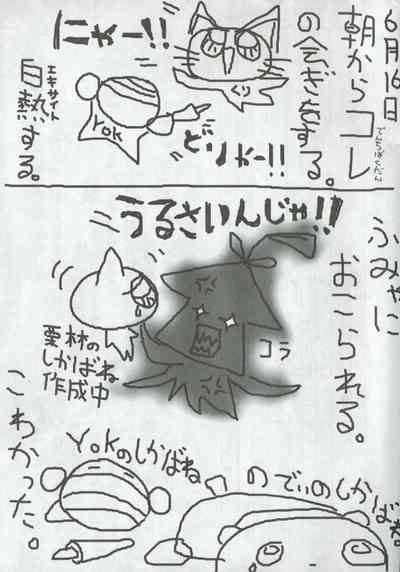 6月16日
朝からコレ
でんちばくだん
の会ぎをする。
にゃー!!
くり
YOK
どりゃー!!
エキサイト
白熱する。
うるさいんじゃ!!
ふみゃに
おこられる。
コラ
栗林の
しかばね
作成中
YOKのしかばね
のでぃのしかばね。
こわかった。